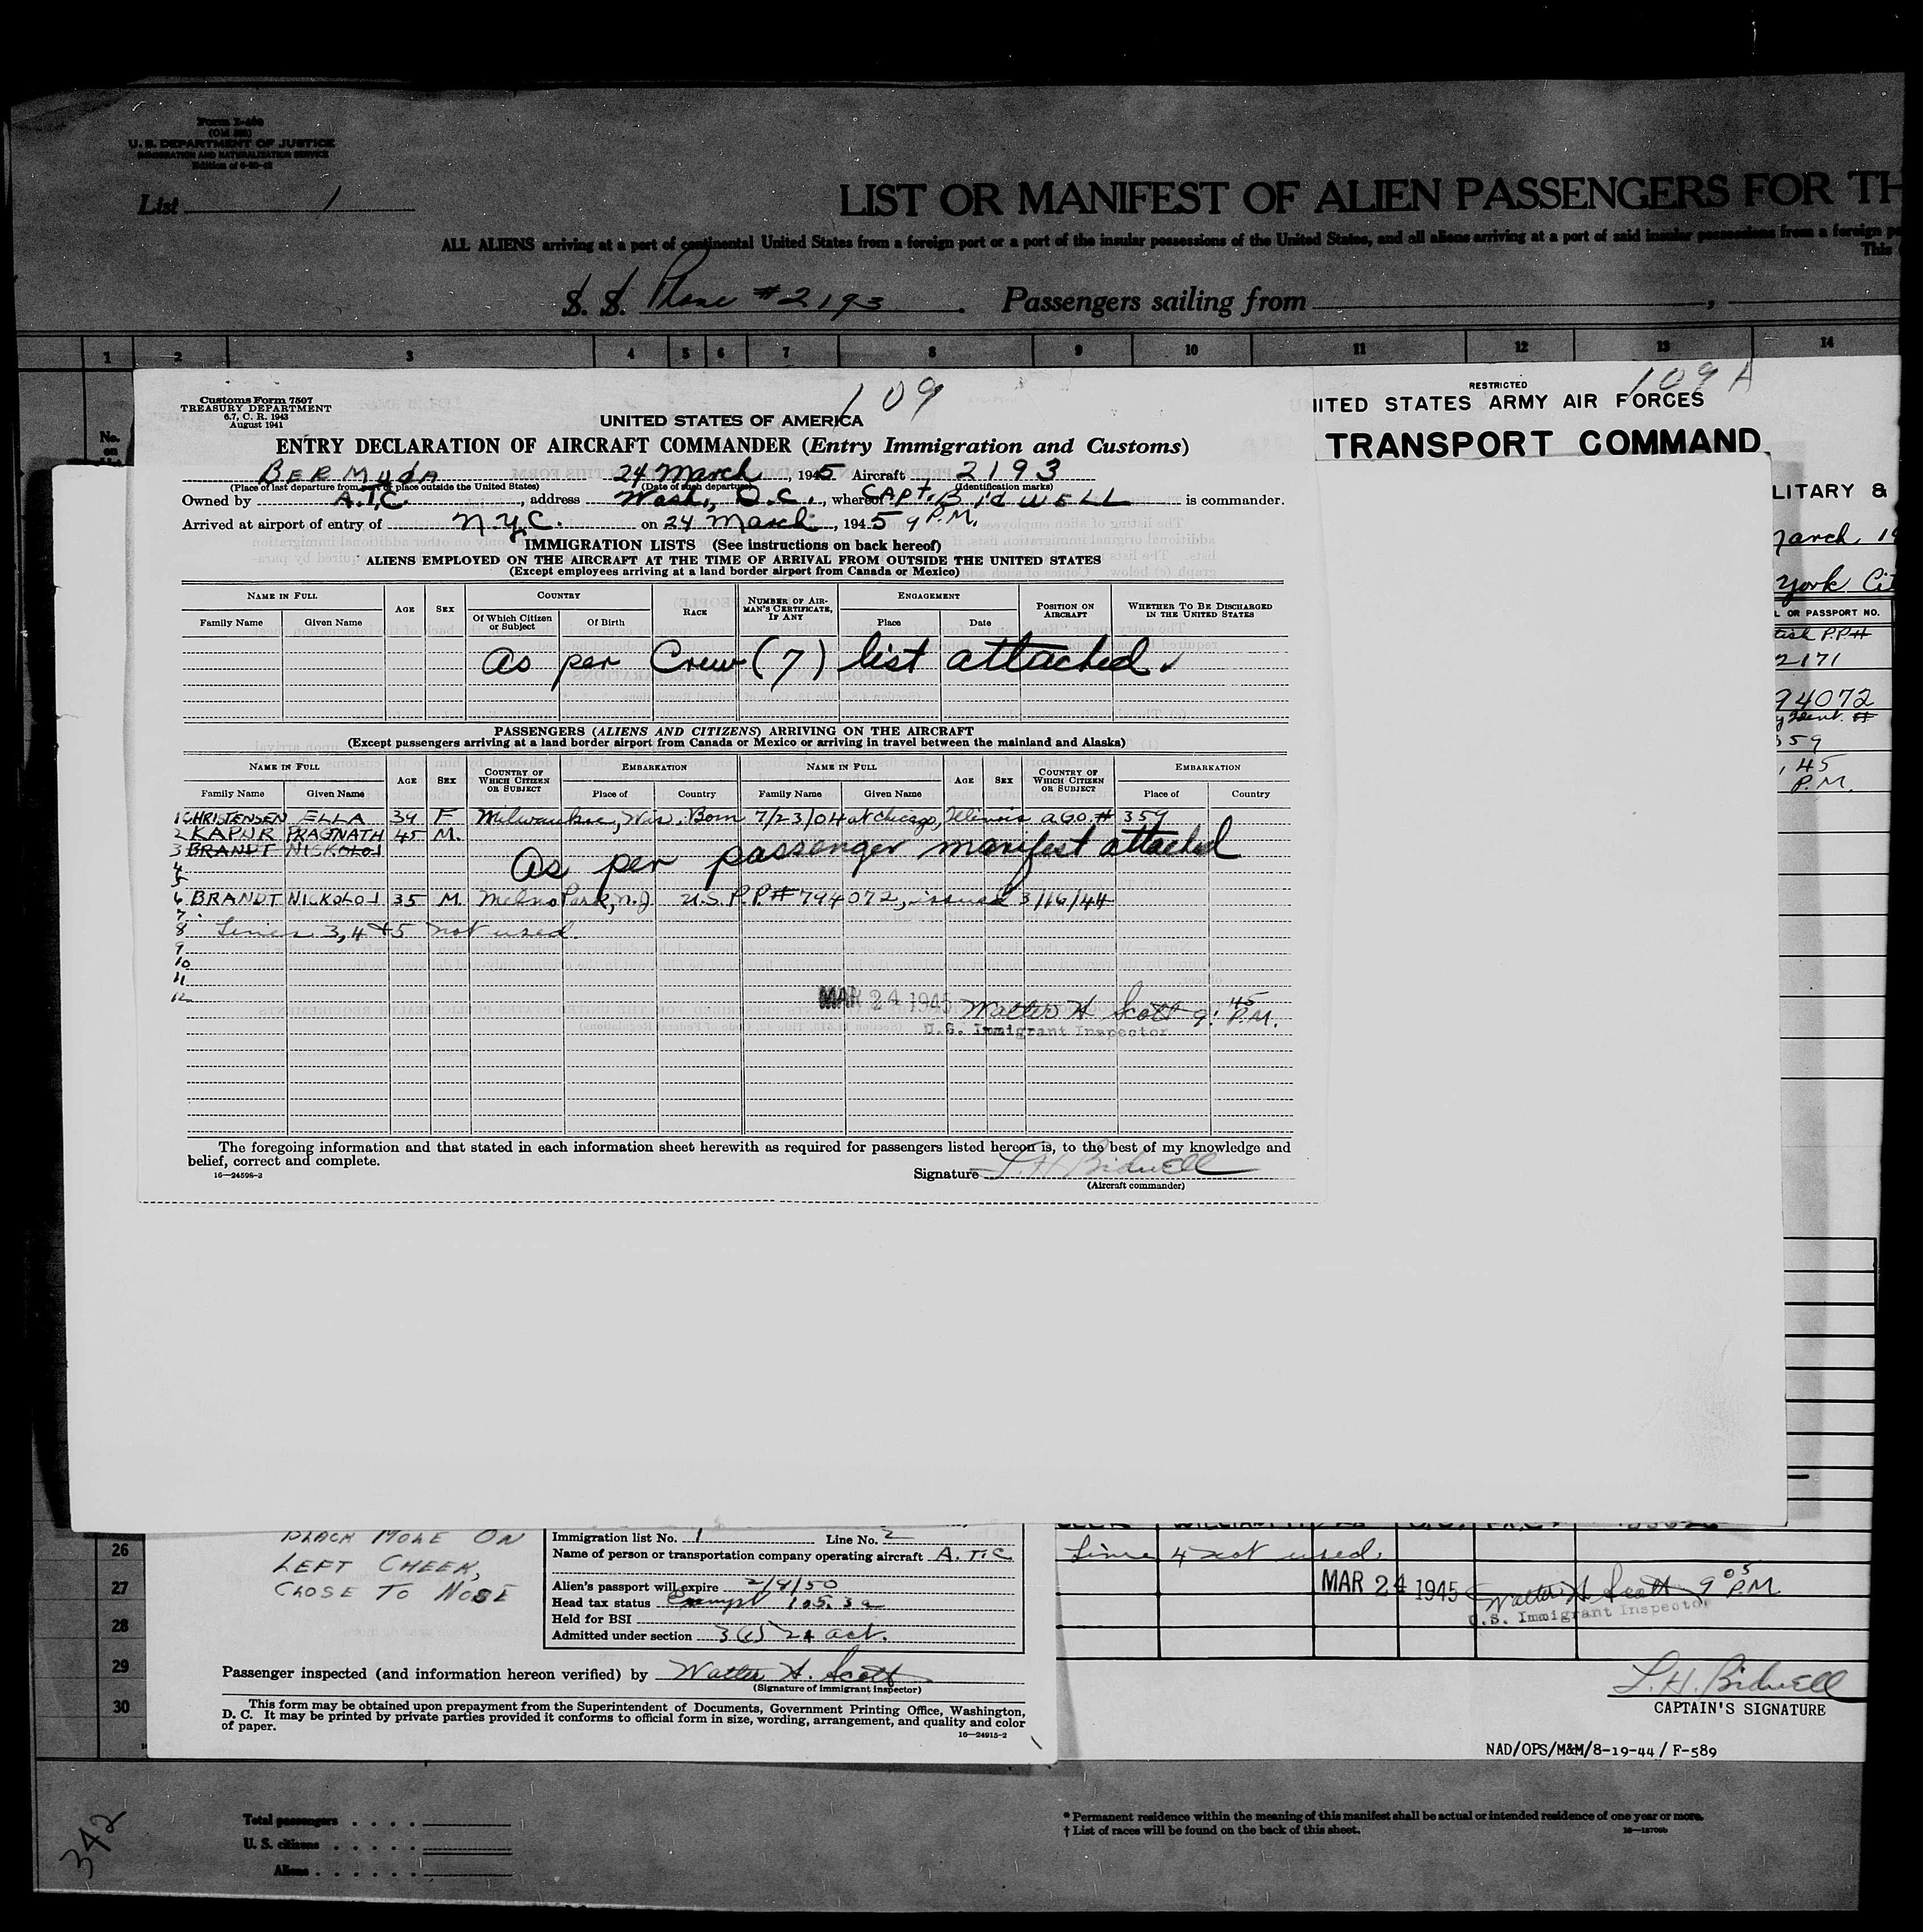 Form I-460
(OM 222)
U. S. DEPARTMENT OF JUSTICE
IMMIGRATION AND NATURALIZATION SERVICE
Edition of
List 1
LIST OR MANIFEST OF ALIEN PASSENGERS FOR TH
ALL ALIENS arriving at a port of continental United States from a foreign port or a port of the insular possessions of the United States, and all aliens arriving at a port of said insular possessions from a foreign po
This
S. S. Plane #2193 . Passengers sailing from , 
1 2 3 4 5 6 7 8 9 10 11 12 13 14
No.
on
109
Customs Form 7507
TREASURY DEPARTMENT
6.7, C. R. 1943
August 1941
UNITED STATES OF AMERICA
ENTRY DECLARATION OF AIRCRAFT COMMANDER (Entry Immigration and Customs)
BERMUdA 24 March, 1945 Aircraft 2193
(Place of last departure from port or place outside the United States) (Date of such departure) (Identification marks)
Owned by A.T.C. , address Wash, D.C. , whereof CAPT. BIdWELL is commander.
Arrived at airport of entry of N.Y.C. on 24 March, 1945 9 P.M.
IMMIGRATION LISTS (See instructions on back hereof)
ALIENS EMPLOYED ON THE AIRCRAFT AT THE TIME OF ARRIVAL FROM OUTSIDE THE UNITED STATES
(Except employees arriving at a land border airport from Canada or Mexico)
NAME IN FULL AGE SEX COUNTRY RACE NUMBER OF AIRMAN'S CERTIFICATE, IF ANY ENGAGEMENT POSITION ON AIRCRAFT WHETHER TO BE DISCHARGED IN THE UNITED STATES
Family Name Given Name Of Which Citizen or Subject Of Birth Place Date
As per Crew (7) list attached ✓
PASSENGERS (ALIENS AND CITIZENS) ARRIVING ON THE AIRCRAFT
(Except passengers arriving at a land border airport from Canada or Mexico or arriving in travel between the mainland and Alaska)
NAME IN FULL AGE SEX COUNTRY OF WHICH CITIZEN OR SUBJECT EMBARKATION NAME IN FULL AGE SEX COUNTRY OF WHICH CITIZEN OR SUBJECT EMBARKATION
Family Name Given Name Place of Country Family Name Given Name Place of Country
1 CHRISTENSEN ELLA 39 F Milwaukee, Wis. Born 7/23/04 at Chicago, Illinois A.G.O. # 359
2 KAPUR PRAGNATH 45 M.
3 BRANDT NICKOLOI
As per passenger manifest attached
4
5
6 BRANDT NICKOLOI 35 M. Park, N.J. U.S. P.P.# 794072, issued 3/16/44
7
8 Lines 3, 4 & 5 not used.
9
10
11
12
MAR 24 1945 Walter H Scott 9:45 P.M.
U.S. Immigrant Inspector
The foregoing information and that stated in each information sheet herewith as required for passengers listed hereon is, to the best of my knowledge and
belief, correct and complete.
16—24598-2
Signature L. H. Bidwell
(Aircraft commander)
109 A
RESTRICTED
NITED STATES ARMY AIR FORCES
TRANSPORT COMMAND
LITARY &
March 19
York Cit
L OR PASSPORT NO.
tish P.P.#
2171
94072
59
, 45
P.M.
BLACK MOLE ON
LEFT CHEEK,
CLOSE TO NOSE
26
27
28
29
30
Immigration list No. 1 Line No. 2
Name of person or transportation company operating aircraft A.T.C.
Alien's passport will expire 2/8/50
Head tax status Exempt 105.3a
Held for BSI
Admitted under section 3(6) 24 act.
Passenger inspected (and information hereon verified) by Walter H. Scott
(Signature of immigrant inspector)
This form may be obtained upon prepayment from the Superintendent of Documents, Government Printing Office, Washington,
D. C. It may be printed by private parties provided it conforms to official form in size, wording, arrangement, and quality and color
of paper.
16—24915-2
Line 4 not used.
MAR 24 1945 Walter H Scott 9 05 P.M.
U.S. Immigrant Inspector
L. H. Bidwell
CAPTAIN'S SIGNATURE
NAD/OPS/M&M/8-19-44 / F-589
342
Total passengers . . . .
U. S. citizens . . . . .
Aliens . . . . . .
* Permanent residence within the meaning of this manifest shall be actual or intended residence of one year or more.
† List of races will be found on the back of this sheet.